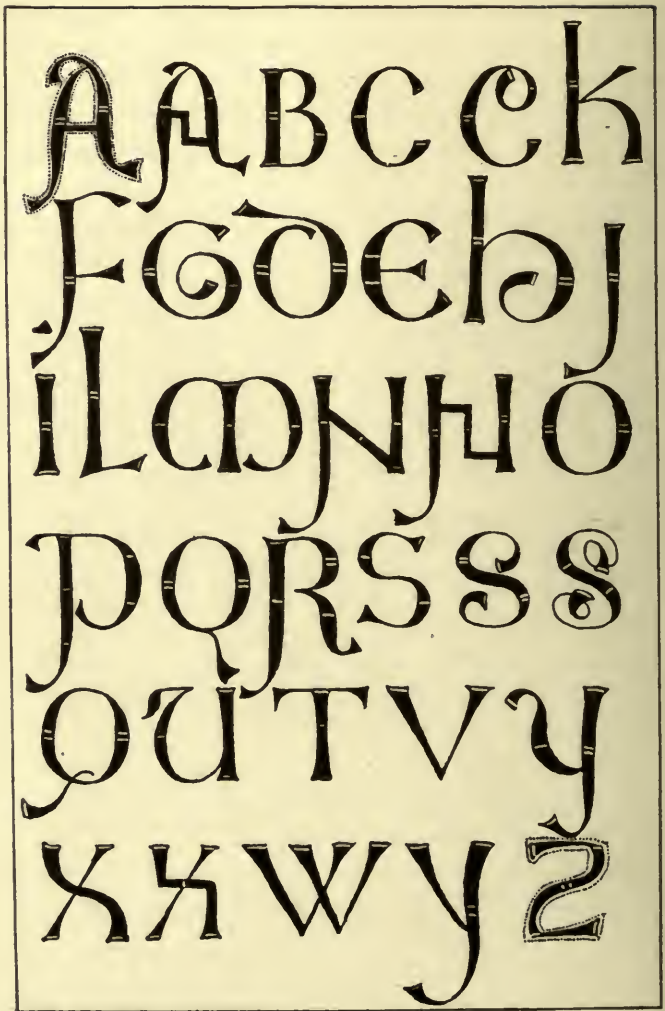 A A B C C K
F G D E H J
I L M N N O
P Q R S S S
Q U T V Y
X X W Y Z